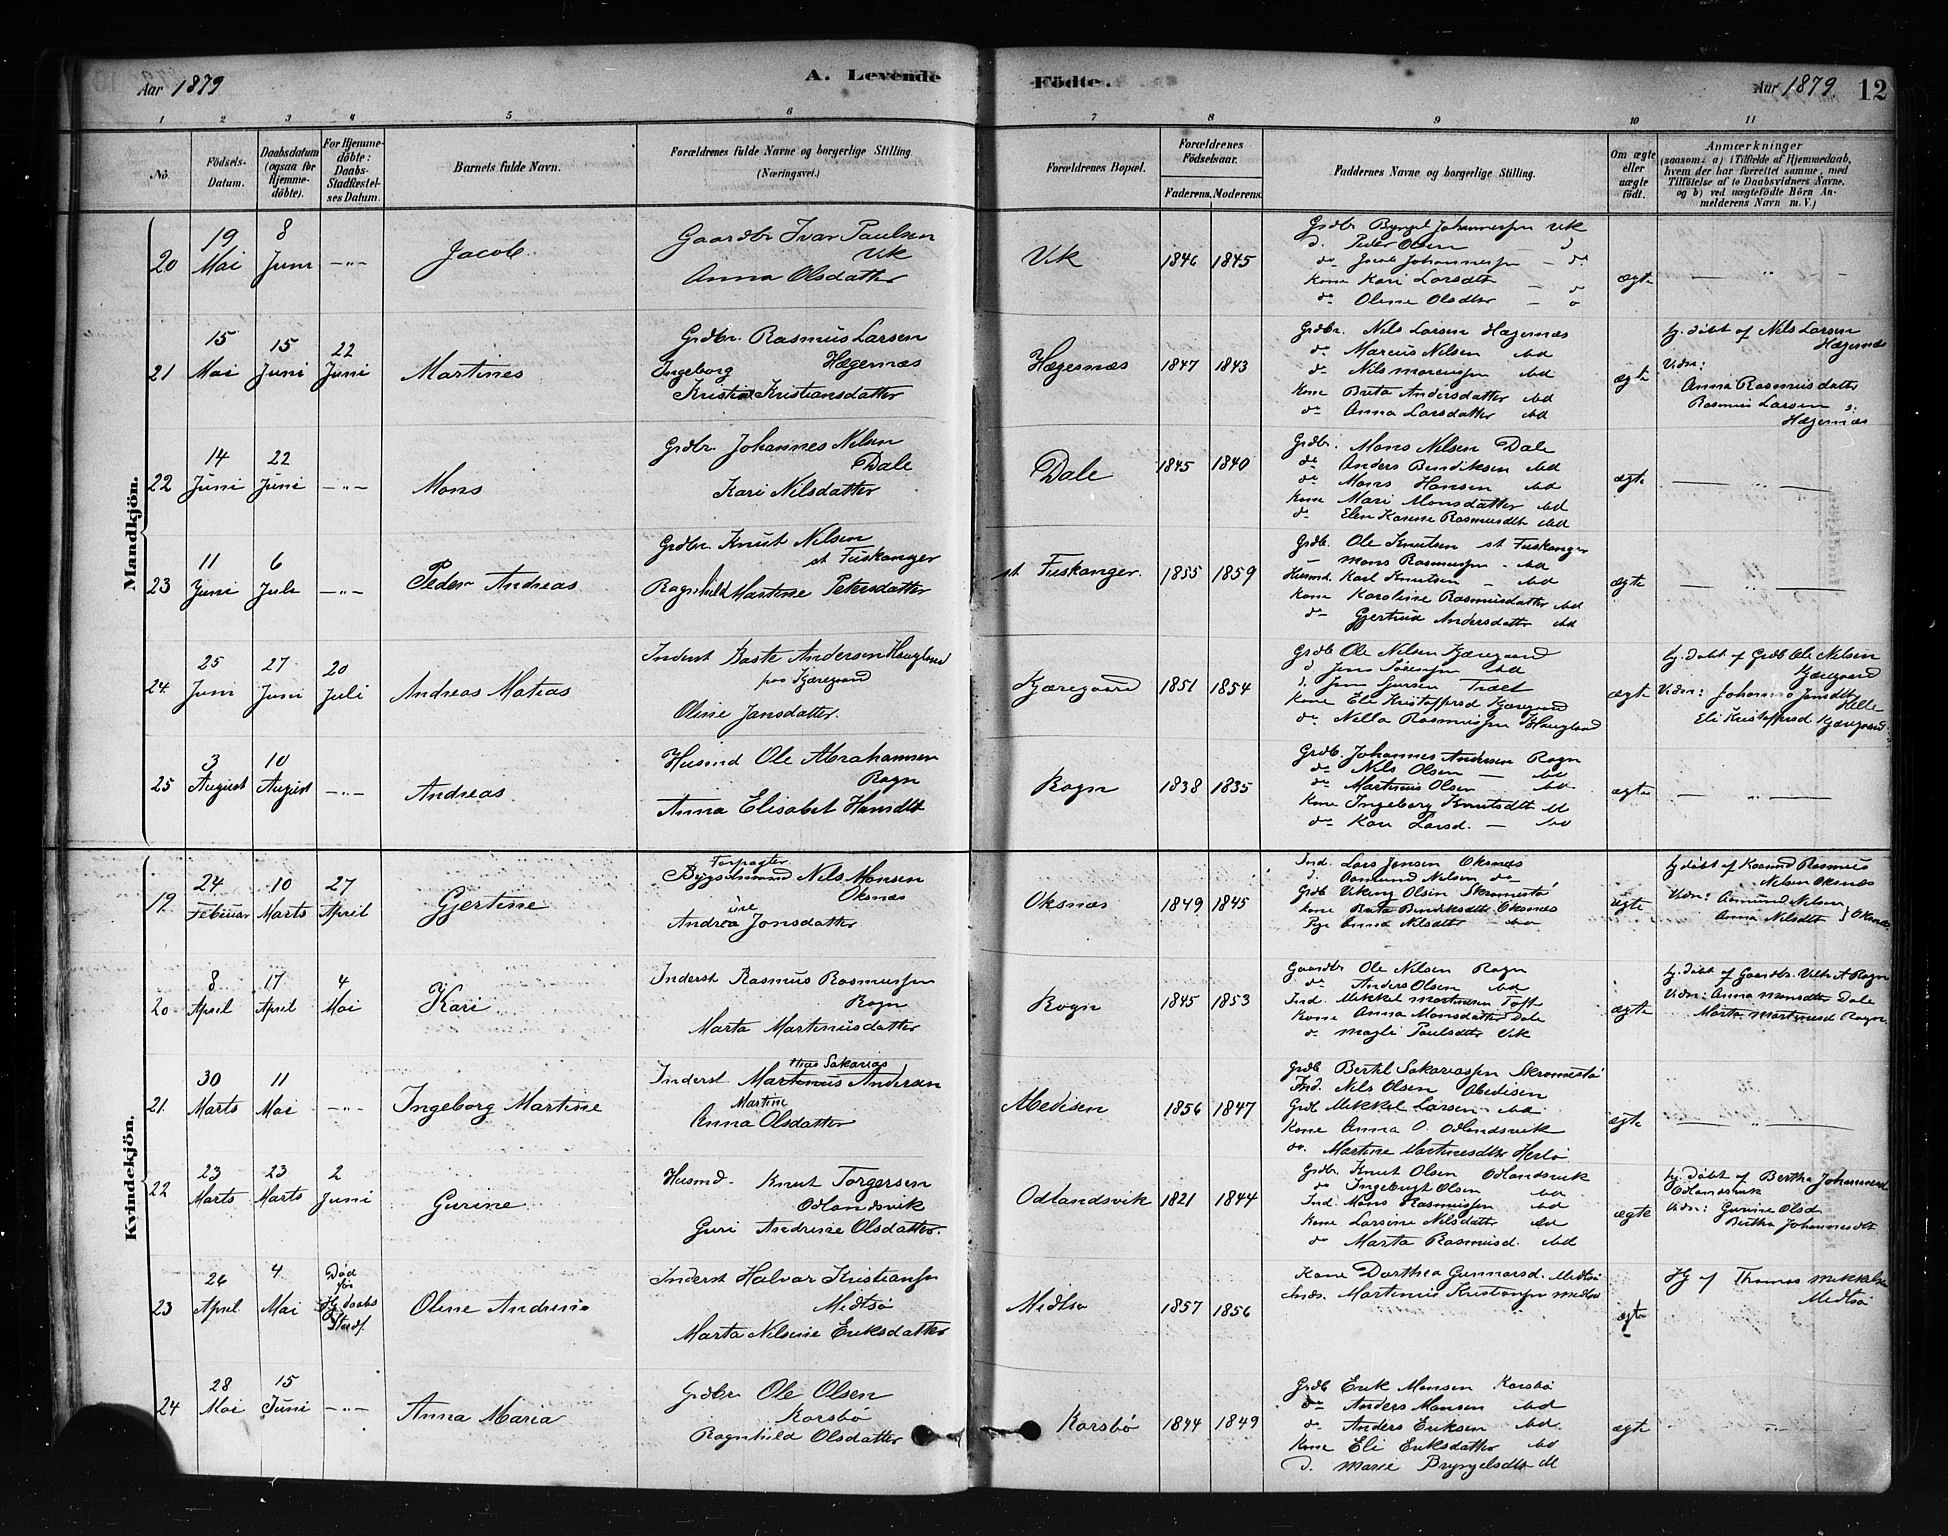 Aar 1879
A. Levende
Födte.
Aar 1879. 12
1 2 3 4 5 6 7 8 9 10 11
No.
Födsels-Datum.
Daabsdatum (ogsaa for Hjemmedöbte).
For Hjemmedöbte: Daabs-Stadfæstelses Datum.
Barnets fulde Navn.
Forældrenes fulde Navne og borgerlige Stilling. (Næringsvei.)
Forældrenes Bopæl.
Forældrenes Födselsaar.
Faderens. Moderens.
Faddernes Navne og borgerlige Stilling.
Om ægte eller uægte födt.
Anmærkninger
(saasom: a) i Tilfælde af Hjemmedaab, hvem der har forrettet samme, med Tilföielse af to Daabsvidners Navne, og b) ved uægtefödte Börn Anmelderens Navn m. V.)
Mandkjön.
20 19 Mai 8 Juni —"— Jacob.
Gaardbr Ivar Paulsen Vik
Anna Olsdatter
Vik 1846 1845
Grdbr Brynjel Johannessen Vik
d. Peder Olsen — d
do Jacob Johannessen — do
Kone Kari Larsdtr — d
do Oline Olsdtr — d
ægte — " —
21 15 Mai 15 Juni 22 Juni Martines
Grdbr. Rasmus Larsen Hægernæs
Ingeborg Kristiansdatter
Hægernæs 1847 1843
Grdbr. Nils Larsen Hægernæs
do Marcus Nilsen ibd
do Nils Marcussen ibd
Kone Brita Andersdatter ibd
do Anna Larsdatter ibd
ægte
hj. döbt af Nils Larsen Hægernæs
Vidn: Anna Rasmusdatter
Rasmus Larsen
Hægernæs
22 14 Juni 22 Juni —"— Mons
Grdbr Johannes Nilsen Dale
Kari Nilsdatter
Dale 1845 1840
Grdbr. Mons Nilsen Dale
do Anders Bendiksen ibd
do Mons Hansen ibd
Kone Mari Monsdatter ibd
do Elen Karine Rasmusdtr ibd
ægte — " —
23 11 Juni 6 Juli —"— Peder Andreas
Grdbr. Knut Nilsen st Fuskanger
Ragnhild Martine Petersdatter
st Fuskanger. 1855 1859
Grdbr. Ole Knutsen st Fuskanger
Mons Rasmussen - ibd
Husmd. Karl Knutsen — ibd
Kone Karoline Rasmusdatter ibd
do Gjertrud Andersdatter ibd
ægte — " —
24. 25 Juni 27 Juni 20 Juli Andreas Matias
Inderst Baste Andersen Haugland
paa Kjæregaard
Oline Jansdatter.
Kjæregaard 1851 1854
Grdb Ole Nilsen Kjæregaard
d. Jens ibd
d. Jens Træet
Kone Eli Kristoffersd Kjæregaard
do Nilla Rasmussen Haugland
ægte
hj. döbt af Grdb Ole Nilsen Kjæregaard
Vidn: Johanna Jansdtr Helle
Eli Kristoffersd Kjæregaard
25 3 August 10 August —"— Andreas
Husmd Ole Abrahamsen Rogn
Anna Elisabet Hansdtr
Rogn 1838 1835
Grdb. Johannes Andersen Rogn
do Nils Olsen — ibd
do Martinus Olsen ibd
Kone Ingeborg Knutsdtr ibd
do Kari Larsd. — ibd
ægte — " —
Kvindekjön.
19 24 Februar 10 Marts 27 April Gjertine
Forpagter
Bygselmand Nils Monsen Oksnæs
Andrea Jonsdatter
Oksnæs 1849 1845
Ind. Lars Jansen Oksnæs
d. Aamund Nilsen do
Grdb Viking Olsen Skromestö
Kone Brita Bendiksdtr Oksnæs
Pige Anna Nilsdtr — ibd
ægte
hj döbt af Rasmus Nilsen Oksnæs
Vidn: Aamund Nilsen
Anna Nilsdtr } Oksnæs
20 8 April 17 April 4 Mai Kari
Inderst Rasmus Rasmussen Rogn
Marta Martinusdatter
Rogn 1845 1853
Gaardbr Ole Nilsen Rogn
do Anders Olsen ibd
Ind. Mikkel Martinsen Toft
Kone Anna Monsdatter Dale
d. Magli Paulsdtr Vik
ægte
hj. döbt af Gaardbr. Rogn
Vidn: Anna Monsdtr Dale
Marta Martinusd Rogn.
21. 30 Marts 11 Mai —"— Ingeborg Martine
Sakarias
Inderst Martinus Andersen
Martine
Anna Olsdatter
Abedisen 1856 1847
Grdb Bertil Sakariassen Skromestö
Ind. Nils Olsen Abedisen
Grdb Mikkel Larsen ibd
Kone Anna O. Odlandsvik
do. Martine Martinusdtr Herlö
ægte — " —
22 23 Marts 23 Marts 2 Juni Gurine
Husmd. Knut Torgersen Odlandsvik
Guri Andrine Olsdatter.
Odlandsvik 1821 1844
Grdbr. Knut Olsen Odlandsvik
do Ingebrigt Olsen ibd
Ind. Mons Rasmussen ibd
Kone Larsine Nilsdatter ibd
do Marta Rasmusd. ibd
ægte
hj. döbt af Bertha Johannesd
Odlandsvik
Vidn: Gurine Olsd
Bertha Johannesdtr
23 26 April 4 Mai Död för Hj.daabs Stadf. Oline Andrine
Inderst Halvar Kristiansen Midtsö
Marta Nilsine Eriksdatter
Midtsö 1857 1856
Kone Dorthea Gunnarsd. Midtsö
Inds. Martinus Kristiansen Midtsö
ægte
Hj af Thomas Mikkelsen Midtsö
24 28 Mai 15 Juni —"— Anna Maria
Grdbr Ole Olsen Korsbö
Ragnhild Olsdatter
Korsbö 1844 1849
Grdb Erik Monsen Korsbö
do Anders Monsen ibd
do Anders Eriksen ibd.
Kone Eli Eriksdatter ibd
d. Marie Brynjelsdtr ibd
ægte — " —